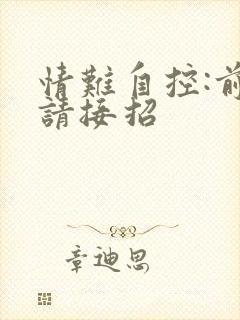 情難自控:前
請接招
章迪思